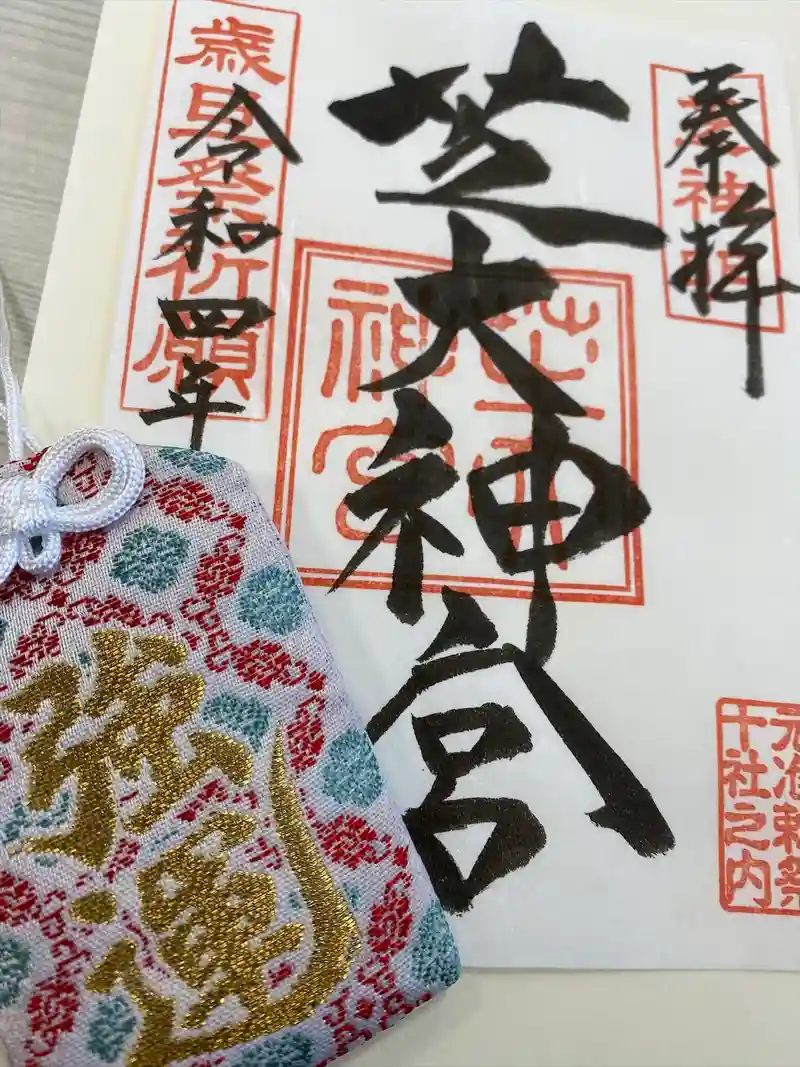 奉拝
芝大神宮
令和四年
芝大
神宮
元准勅祭
十社之内
強運